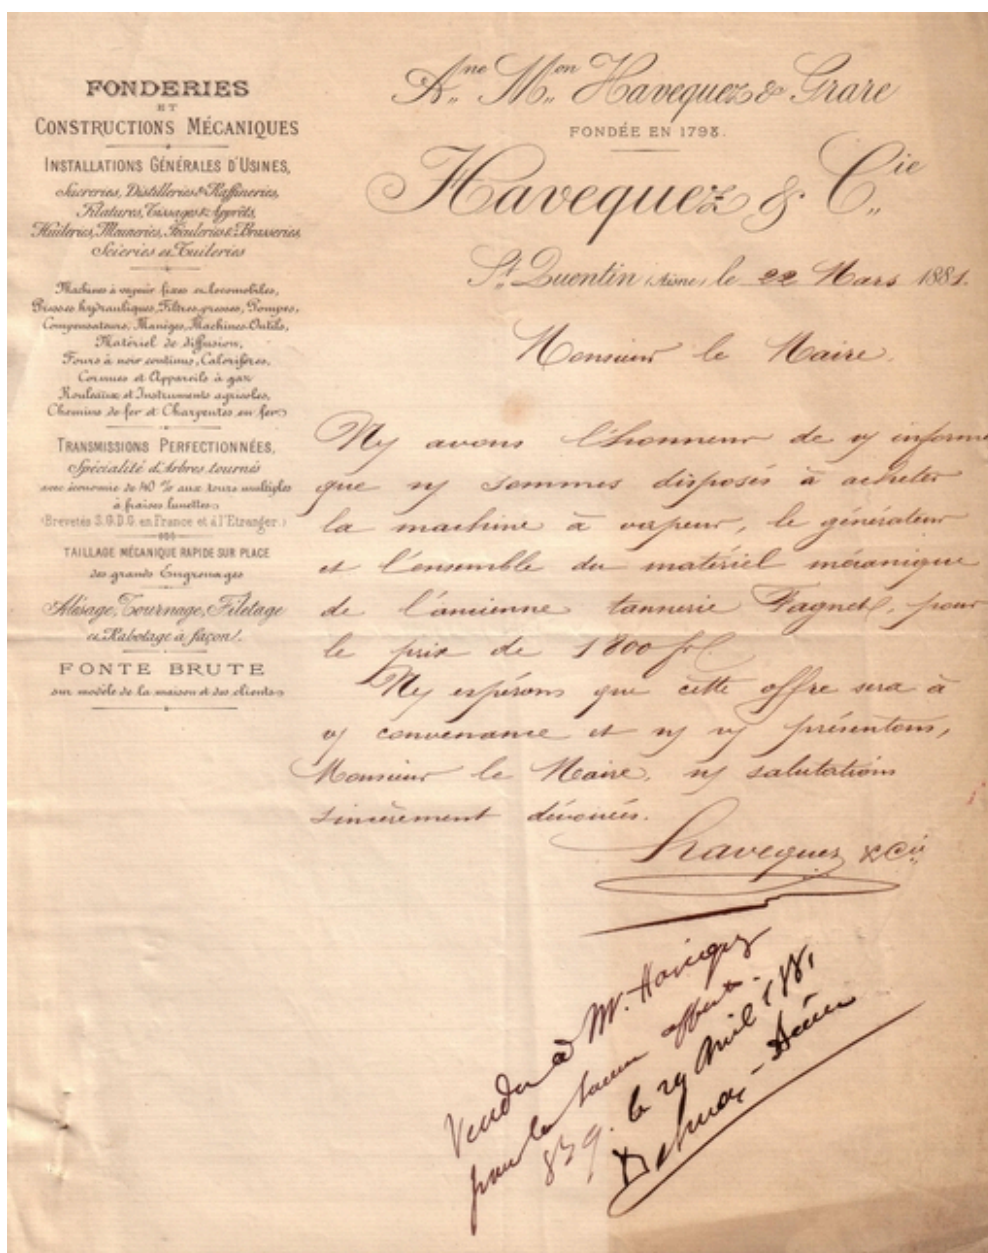 FONDERIES
ET
CONSTRUCTIONS MÉCANIQUES
INSTALLATIONS GÉNÉRALES D'USINES,
Sucreries, Distilleries & Raffineries,
Filatures, Tissages & Apprêts,
Huileries, Meuneries, Féculeries & Brasseries,
Scieries et Tuileries
Machines à vapeur fixes et locomobiles,
Presses hydrauliques, Filtres-presses, Pompes,
Compensateurs, Manèges, Machines-Outils,
Matériel de diffusion,
Fours à noir continus, Calorifères,
Cornues et Appareils à gaz
Rouleaux et Instruments agricoles,
Chemins de fer et Charpentes en fer
TRANSMISSIONS PERFECTIONNÉES,
Spécialité d'Arbres tournés
avec économie de 40 % aux tours multiples
à fraises lunettes
(Brevetés S.G.D.G. en France et à l'Etranger.)
TAILLAGE MÉCANIQUE RAPIDE SUR PLACE
des grands Engrenages
Alésage, Tournage, Filetage
et Rabotage à façon.
FONTE BRUTE
sur modèle de la maison et des clients
Ane Mon Havequez & Grare
FONDÉE EN 1798.
Havequez & Cie
St Quentin (Aisne) le 22 Mars 1881.
Monsieur le Maire.
Ns avons l'honneur de vs informer
que ns sommes disposés à acheter
la machine à vapeur, le générateur
et l'ensemble du matériel mécanique
de l'ancienne tannerie Fagnet, pour
le prix de 1800 f
Ns espérons que cette offre sera à
vs convenance et ns vs présentons,
Monsieur le Maire, ns salutations
sincèrement dévouées.
Havequez & Cie
Vendu à M. Havequez
pour la somme offerte.
le 29 Avril 1881